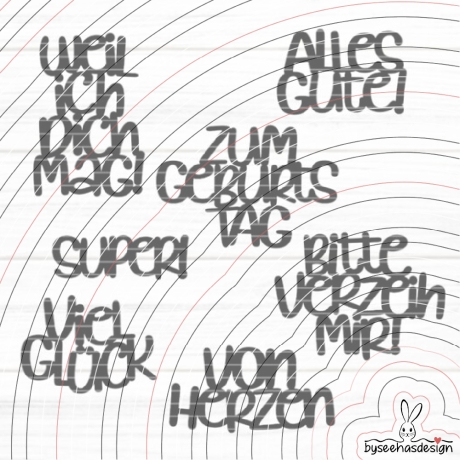 WEIL
ICH
DICH
MAG!
ALLES
GUTE!
ZUM
GEBURTS
TAG
SUPER!
BITTE
VERZEIH
MIR!
VIEL
GLÜCK
VON
HERZEN
byseehasdesign